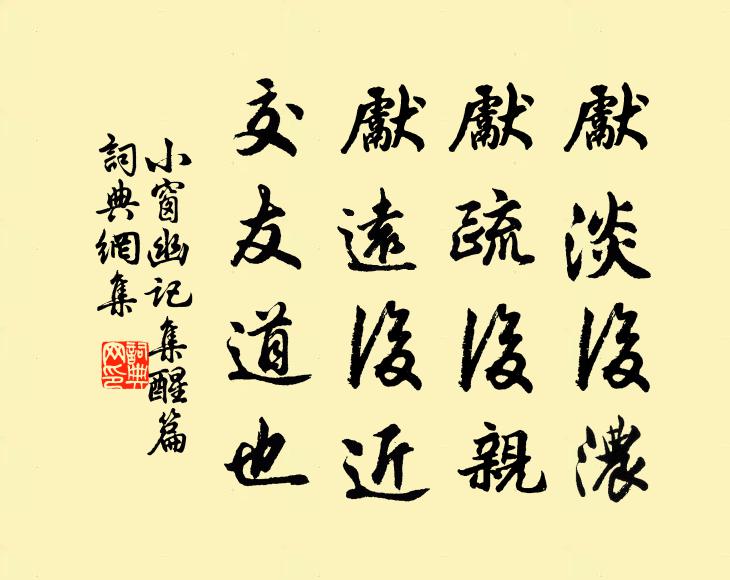 獻淡後濃
獻疏後親
獻遠後近
交友道也
小窗幽記集醒篇
詞典網集
詞典
网印